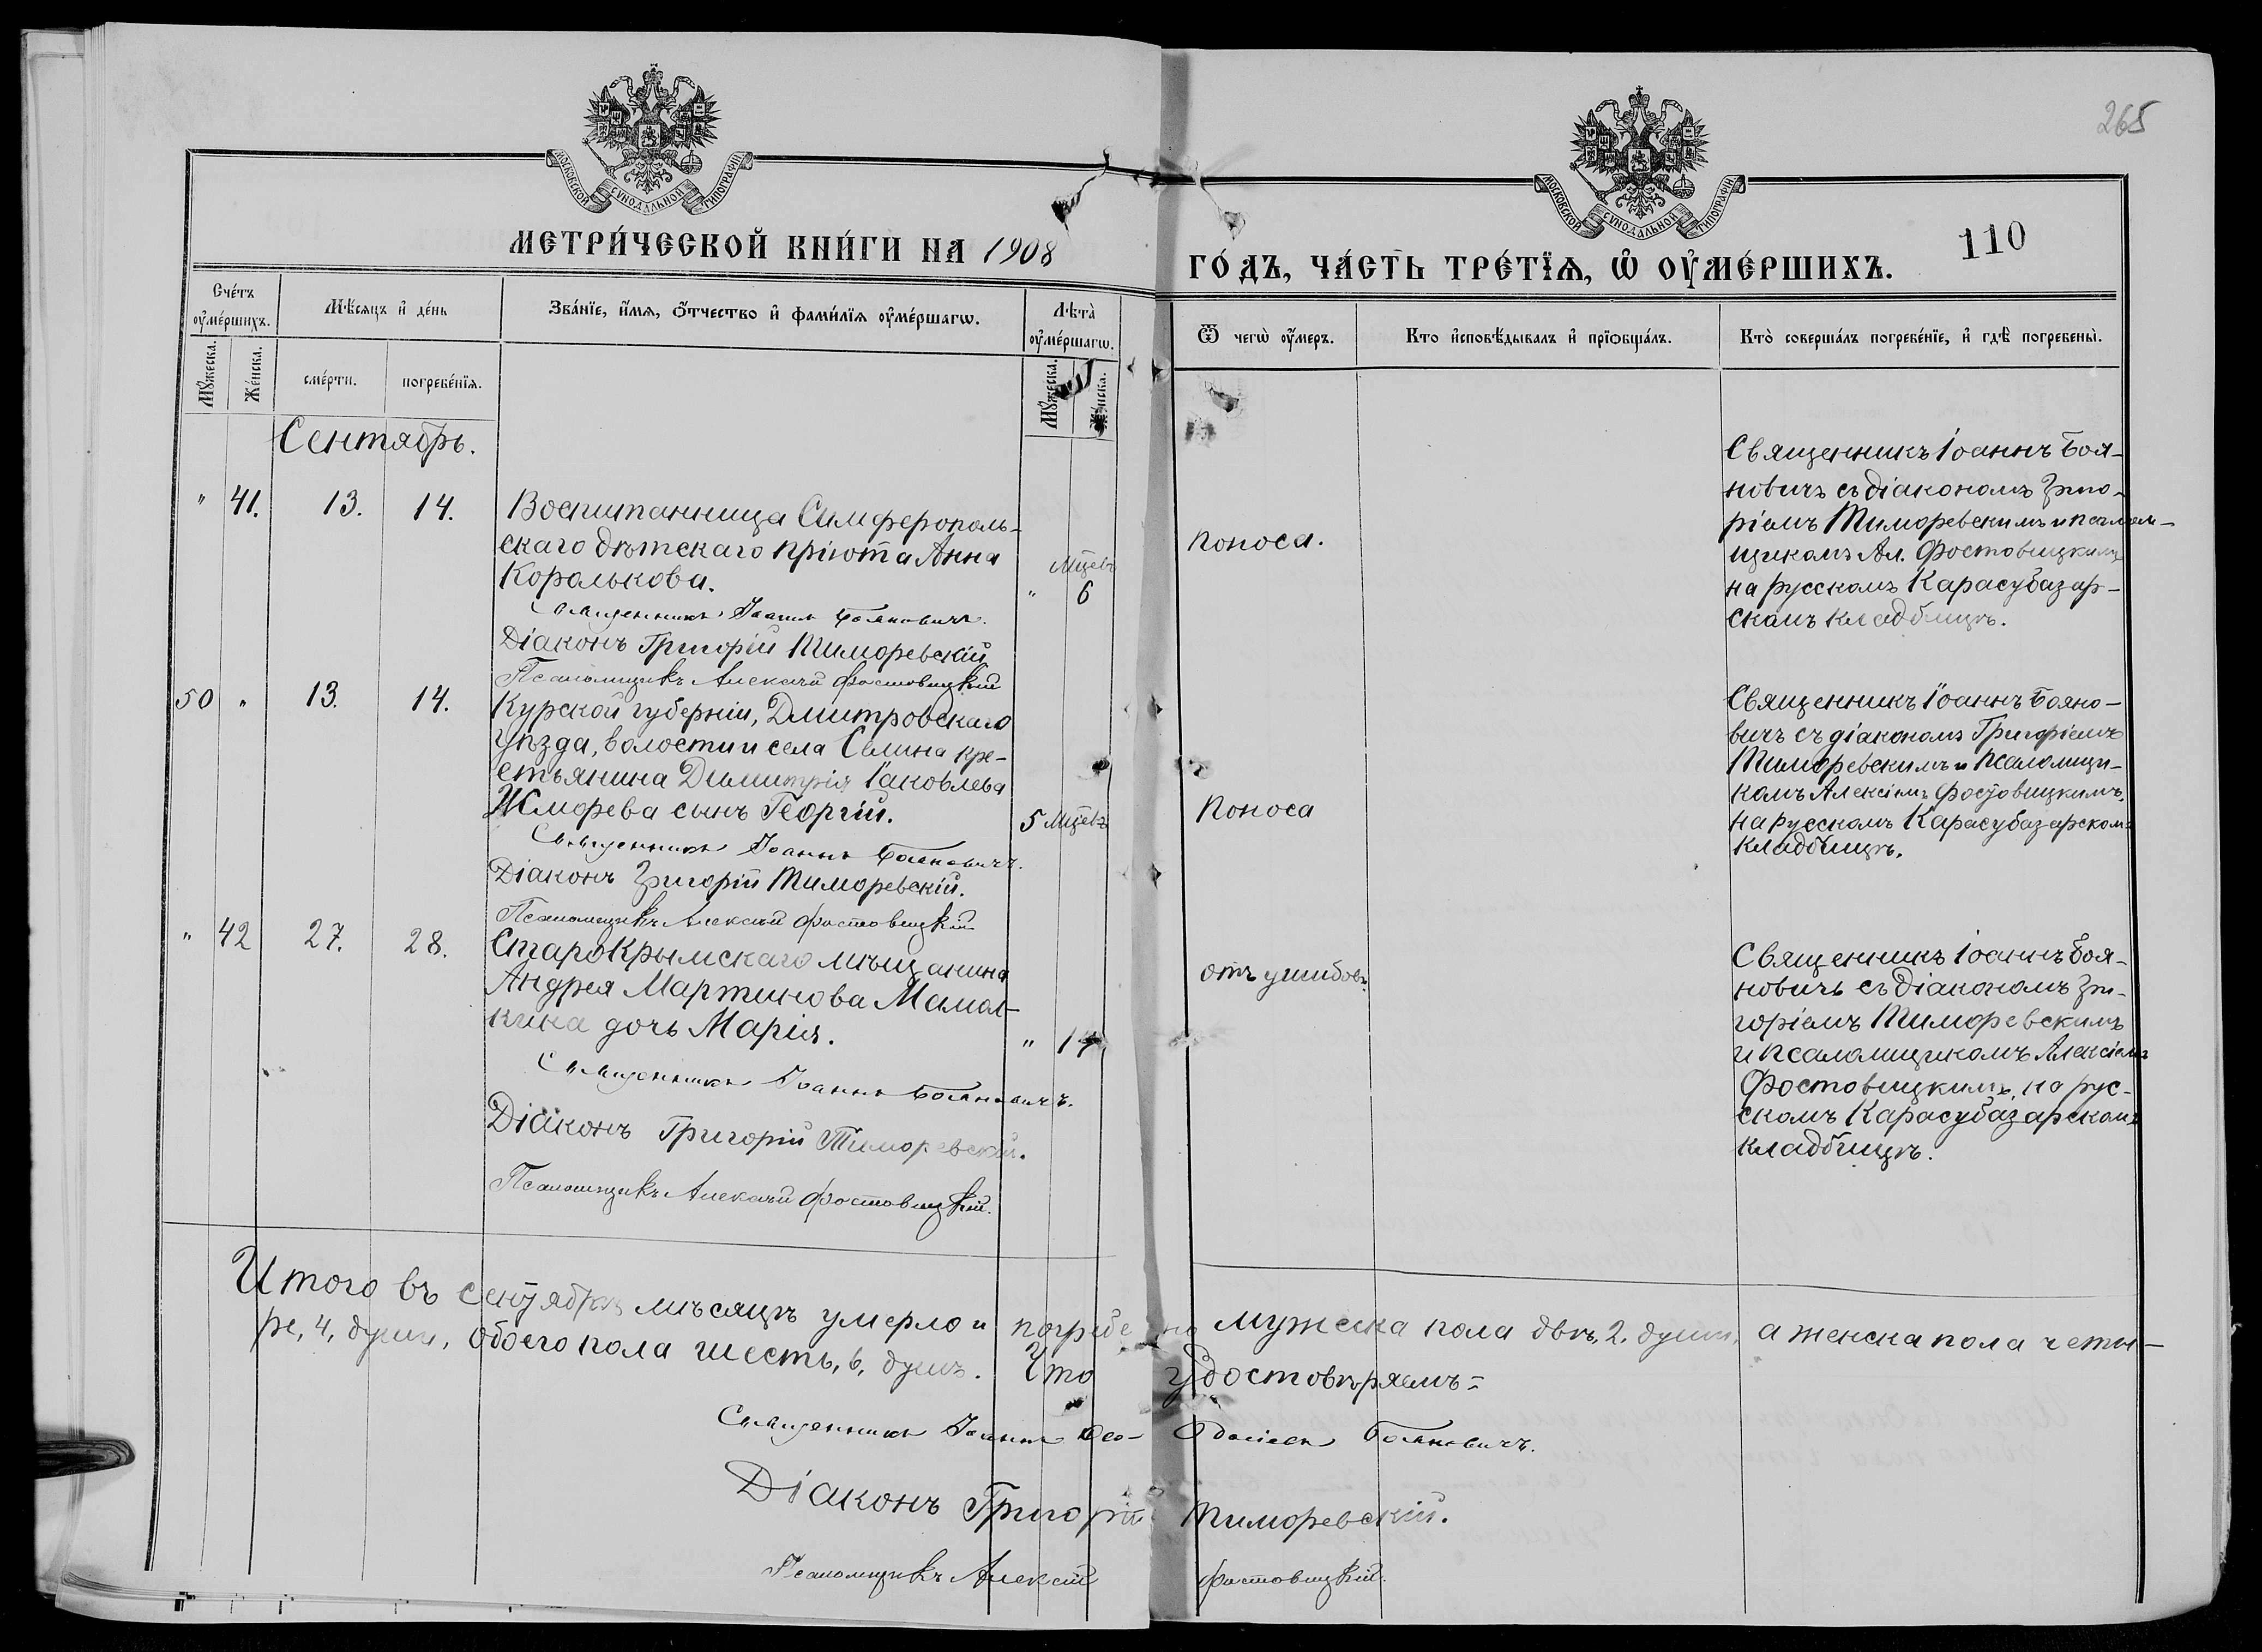 265
МОСКОВСКОЙ СѴНОДАЛЬНОЙ ТИПОГРАФІИ
МОСКОВСКОЙ СѴНОДАЛЬНОЙ ТИПОГРАФІИ
МЕТРИ́ЧЕСКОЙ КНИ́ГИ НА 1908
ГО́ДЪ, ЧА́СТЬ ТРЕ́ТЇѦ, Ѡ҆ ОУ҆МЕ́РШИХЪ.
110
Сче́тъ
оу҆ме́ршихъ.
Мѣ́сяцъ и҆ де́нь
Зва́нїе, и҆́мѧ, ѻ҆́тчество и҆ фами́лїѧ оу҆ме́ршагѡ.
Лѣта̀
оу҆ме́ршагѡ.
Ѿ чегѡ̀ оу҆́меръ.
Кто̀ и҆сповѣ́дывалъ и҆ прїѡбща́лъ.
Кто̀ соверша́лъ погребе́нїе, и҆ гдѣ̀ погребены̀.
Мꙋ́жеска.
Же́нска.
сме́рти.
погребе́нїѧ.
Мꙋ́жеска.
Же́нска.
Сентябрь.
" 41. 13. 14.
Воспитанница Симферополь-
скаго дѣтскаго пріюта Анна
Королькова.
" Мцевъ
6
Священникъ Іоаннъ Бояновичъ.
Діаконъ Григорій Тиморевскій
Псаломщикъ Алексій Фостовицкій
поноса.
Священникъ Іоаннъ Боя-
новичъ съ діакономъ Григо-
ріемъ Тиморевскимъ и псалом-
щикомъ Ал. Фостовицкимъ
на русскомъ Карасубазар-
скомъ кладбищѣ.
50 " 13. 14.
Курской губерніи, Дмитровскаго
уѣзда, волости и села Селина кре-
стьянина Димитрія Іаковлева
Жморева сынъ Георгій.
5 Мцевъ
Священникъ Іоаннъ Бояновичъ.
Діаконъ Григорій Тиморевскій.
Псаломщикъ Алексій Фостовицкій
Поноса
Священникъ Іоаннъ Бояно-
вичъ съ діакономъ Григоріемъ
Тиморевскимъ и псаломщи-
комъ Алексіемъ Фостовицкимъ,
на русскомъ Карасубазарскомъ
кладбищѣ.
" 42 27. 28.
Старокрымскаго мѣщанина
Андрея Мартинова
дочь Марія.
"
Священникъ Іоаннъ Бояновичъ.
Діаконъ Григорій Тиморевскій.
Псаломщикъ Алексій Фостовицкій.
отъ ушибовъ.
Священникъ Іоаннъ Боя-
новичъ съ діакономъ Гри-
горіемъ Тиморевскимъ
и псаломщикомъ Алексіемъ
Фостовицкимъ, на рус-
скомъ Карасубазарскомъ
кладбищѣ.
Итого въ сентябрѣ мѣсяцѣ умерло и погребено мужеска пола двѣ, 2, души, а женска пола четы-
ре, 4, души, обоего пола шесть, 6, душъ. Что удостовѣряемъ:
Священникъ Іоаннъ Бояновичъ.
Діаконъ Григорій Тиморевскій.
Псаломщикъ Алексій Фостовицкій.